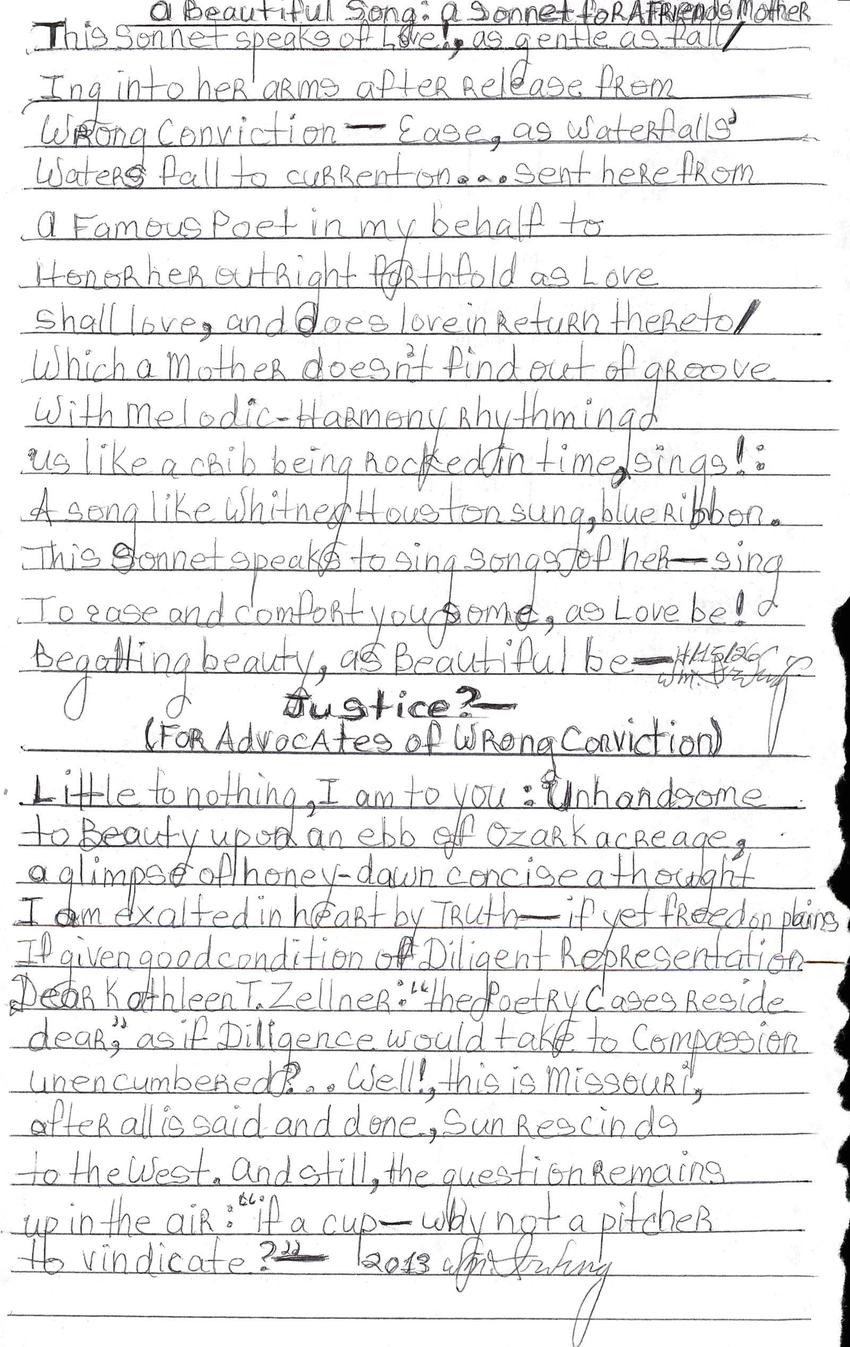 a Beautiful Song: a Sonnet for A Friends Mother
This Sonnet speaks of Love!, as gentle as fall/
Ing into her arms after release from
Wrong Conviction — Ease, as Waterfalls'
Waters fall to current on... sent here from
a Famous Poet in my behalf to
Honor her outright forthfold as Love
shall love, and does love in return thereto/
Which a Mother doesn't find out of groove
With melodic-Harmony rhythming
us like a crib being rocked in time, sings!:
A song like Whitney Houston sung, blue ribbon.
This Sonnet speaks to sing songs of her — sing
To ease and comfort you some, as Love be!
Begatting beauty, as Beautiful be —
Justice? —
(For Advocates of Wrong Conviction)
Little to nothing, I am to you: Unhandsome
to Beauty upon an ebb of Ozark acreage,
a glimpse of honey-dawn concise a thought
I am exalted in heart by Truth — if yet freed on plains
If given good condition of Diligent Representation
Dear Kathleen T. Zellner: "the Poetry Cases Reside
dear," as if Diligence would take to Compassion
unencumbered?... Well!, this is Missouri,
after all is said and done, Sun Rescinds
to the West. And still, the question remains
up in the air: "if a cup — why not a pitcher
to vindicate?" — 2013